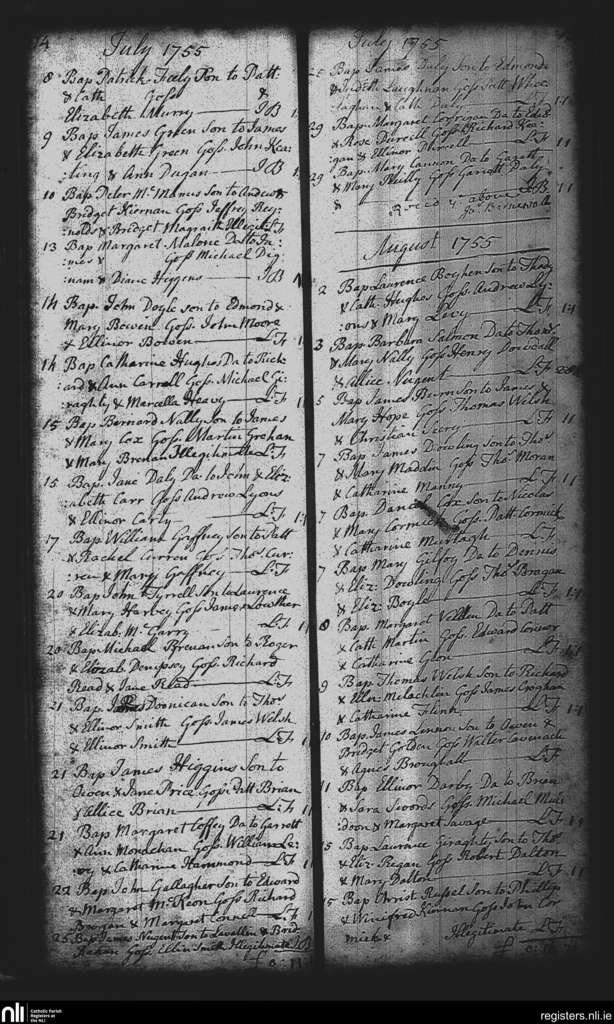 July 1755
8 Bap Patrick Feely Son to Patt:
& Cath Goss &
Elizabeth Murry — IB
9 Bap James Green Son to James
& Elizabeth Green Goss John Kea:
:ting & Ann Dugan — IB
10 Bap Peter Mc Manus Son to Andrew &
Bridget Kiernan Goss Jeffrey Rey:
:nolds & Bridget Magrath Illegit LF
13 Bap Margaret Malone Da to Ja:
:mes & Goss Michael Dig:
:nam & Diane Higgens — IB
14 Bap John Doyle son to Edmond &
Mary Bowen Goss John Moore
& Ellinor Bowen — L:F
14 Bap Catharine Hughes Da to Rich:
:ard & Ann Carrell Goss Michael Ge:
:raghty & Marcella Heavy — L:F
15 Bap Bernard Nally Son to James
& Mary Cox Goss Martin Grehan
& Mary Brenan Illegitimate L:F
15 Bap Jane Daly Da to John & Eliz:
:abeth Carr Goss Andrew Lyons
& Ellinor Carty — L:F
17 Bap William Gaffney Son to Patt
& Rachel Curren Goss Thos. Cur:
:ren & Mary Gaffney — L:F
20 Bap John Tyrrell Son to Laurence
& Mary Harvey Goss James Lowther
& Elizab. Mc Garry — L:F
20 Bap Michael Brenan Son to Roger
& Elizab Dempsey Goss Richard
Read & Jane Read — L:F
21 Bap Doonican Son to Thos.
& Ellinor Smith Goss James Welsh
& Ellinor Smith — L:F
21 Bap James Higgins Son to
Owen & Jane Price Goss Patt Brian
& Ellice Brian — L:F
21 Bap Margaret Coffey Da to Garrett
& Ann Monachan Goss William Le:
:vy & Catharine Hammond — L:F
22 Bap John Gallagher Son to Edward
& Margaret McKeon Goss Richard
Brogan & Margaret Connel — L:F
25 Bap James Neugent Son to Lavallin & Brid:
Goss Ellin Smith Illegitimate IB
July 1755
25 Bap James Daly Son to Edmond
& Judith Laughnan Goss Patt
& Cath Daly
29 Bap Margaret Corrigan Da to
& Rose Durell Goss Richard Kea:
:gan & Ellinor Durell — L:F 11
29 Bap Mary Cannon Da to Garrett
& Mary Reilly Goss Garrett Daly
& IB 11
Reced ye above Js: Barnewall
August 1755
2 Bap Laurence Boghen Son to Thady
& Cath Hughes Goss Andrew Ly:
:ons & Mary Levy — L:F
3 Bap Barbara Salmon Da to Thos.
& Mary Nelly Goss Henry Dowdall
& Allice Neugent — L:F
5 Bap James Burn Son to James &
Mary Hope Goss Thomas Welsh
& Christian — L:F 11
7 Bap James Dowling Son to Thos.
& Mary Maddin Goss Thos. Moran
& Catharine Manny — L:F 11
7 Bap Daniel Cox Son to Nicolas
& Mary Cormick Goss Patt Cormick
& Catharine Murtagh — L:F
7 Bap Mary Gilfoy Da to Dennis
& Eliz: Dowling Goss Thos. Brogan
& Eliz: Boyle — L:F
8 Bap Margaret Da to Patt
& Cath Martin Goss Edward Connor
& Catharine Glen — L:F
9 Bap Thomas Welsh Son to Richard
& Ellen Melachlin Goss James Croghan
& Catharine Flink — L:F
10 Bap James Lennon Son to Owen &
Bridget Golden Goss Walter Cavenach
& Agnes Broughall — L:F
11 Bap Ellinor Darby Da to Brian
& Sara Swords Goss Michael Mul:
:doon & Margaret Savage — L:F
15 Bap Laurance Geraghty Son to Thos.
& Eliz: Regan Goss Robert Dalton
& Mary Dalton — L:F 11
15 Bap Christ Russel Son to Phillip
& Winifred Kiernan Goss John Cor
mick & Illegitimate L:F
nli
Catholic Parish
Registers at
the NLI
registers.nli.ie